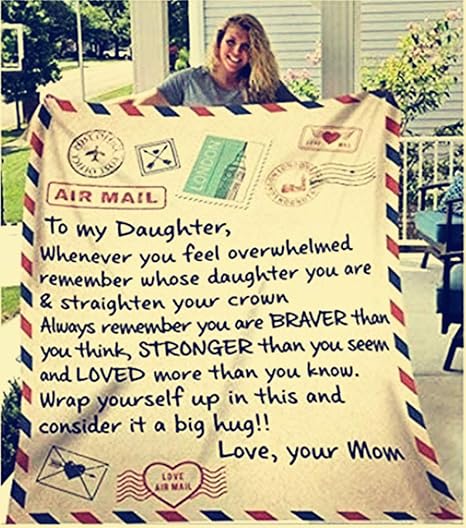 LOVE
MAIL
LONDON
AIR MAIL
To my Daughter,
Whenever you feel overwhelmed
remember whose daughter you are
& straighten your crown
Always remember you are BRAVER than
you think, STRONGER than you seem
and LOVED more than you know.
Wrap yourself up in this and
consider it a big hug!!
Love, your Mom
LOVE
AIR MAIL